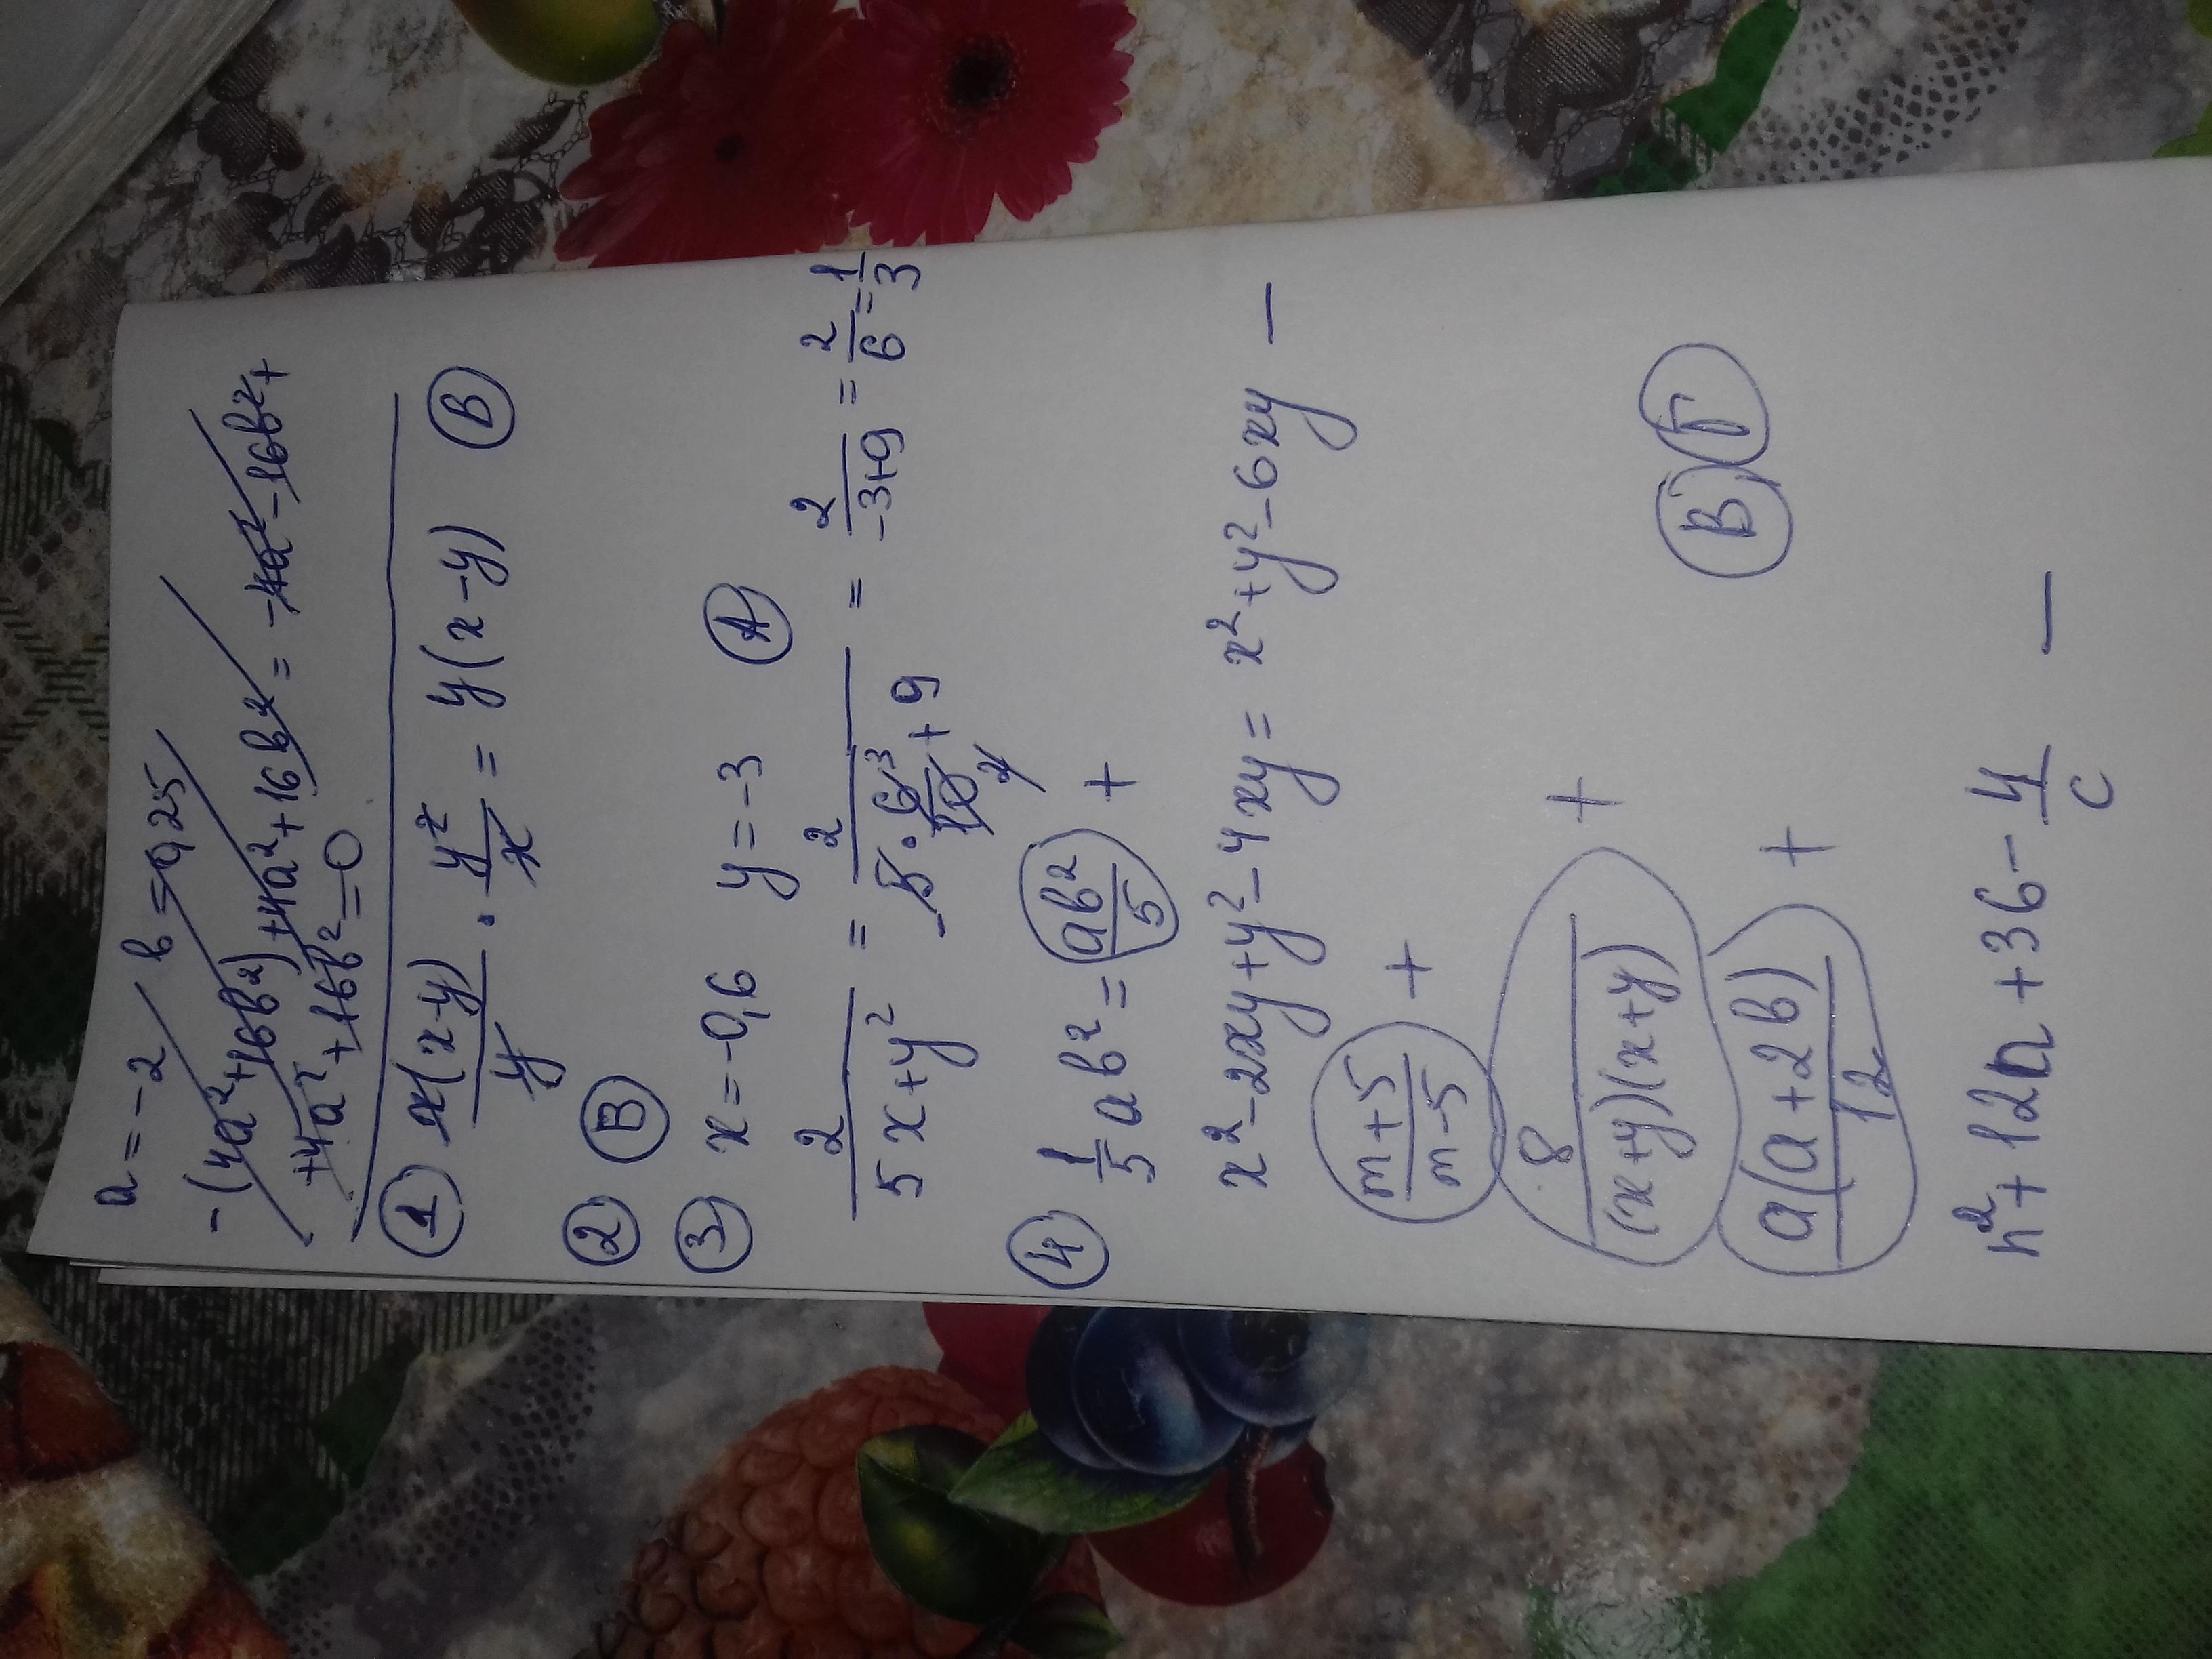 a = -2 b = 0,25
-(4a²+16b²)+4a²+16b² = -4a²-16b²+
+4a²+16b²=0
1) x(x-y)/y · y²/x = y(x-y) В
2) В
3) x = -0,6 y = -3 А
2/(5x+y²) = 2/(-5·6³/10+9) = 2/(-3+9) = 2/6 = 1/3
4) 1/5 ab² = ab²/5 +
x²-2xy+y²-4xy = x²+y²-6xy -
(m+5)/(m-5) +
8/((x+y)(x+y)) +
В Г
a(a+2b)/12 +
n²+12n+36-4/c -